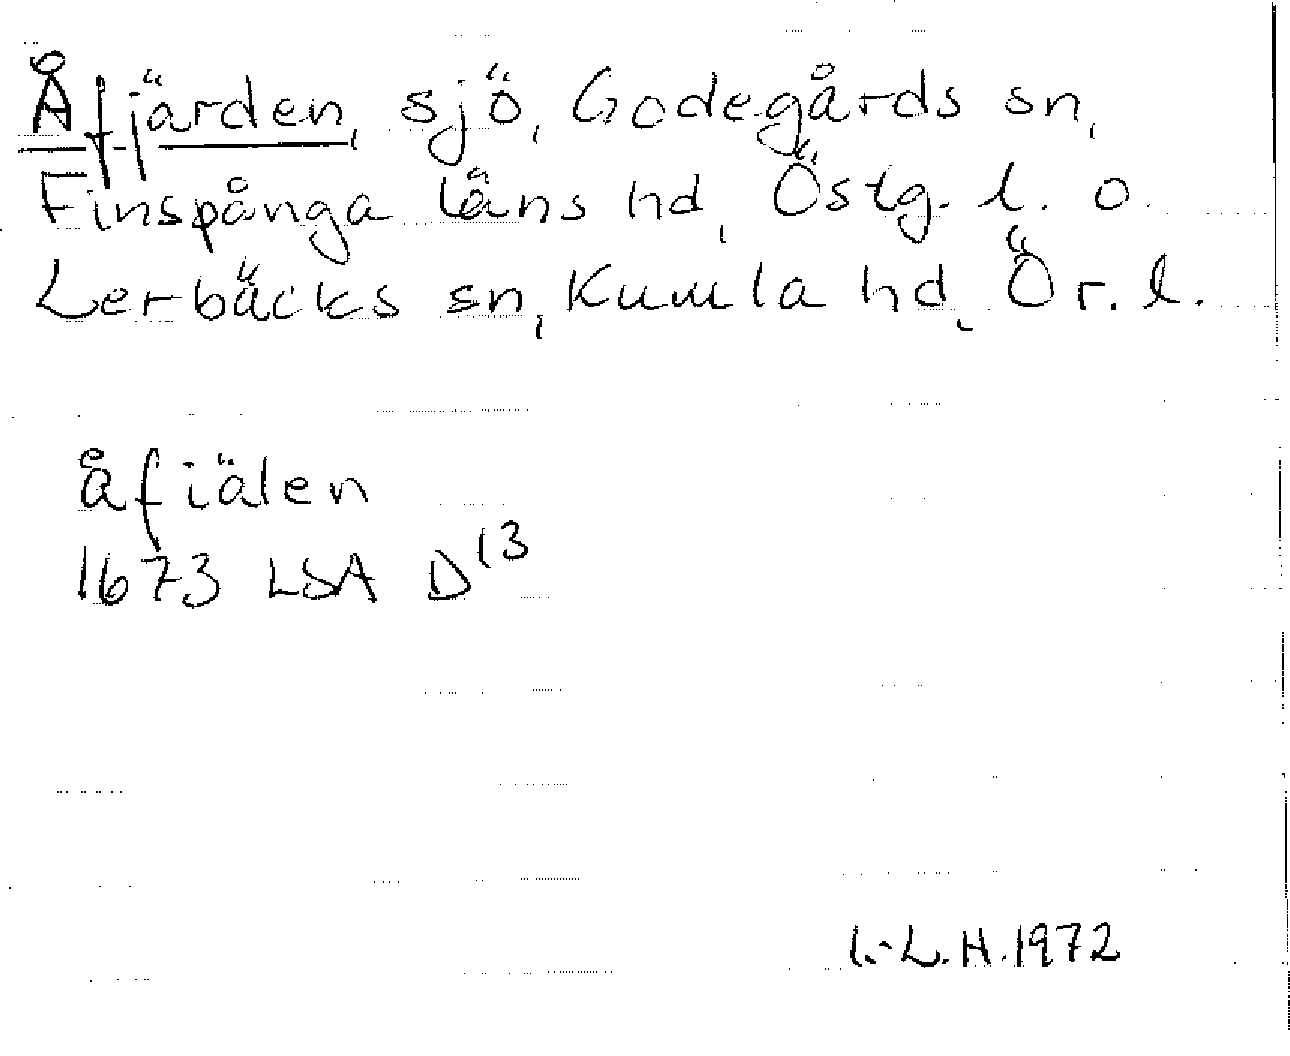 Åfjärden, sjö, Godegårds sn,
Finspånga läns hd, Östg. l. o.
Lerbäcks sn, Kumla hd, Ör. l.
Åfiälen
1673 LSA D13
I.-L.H. 1972